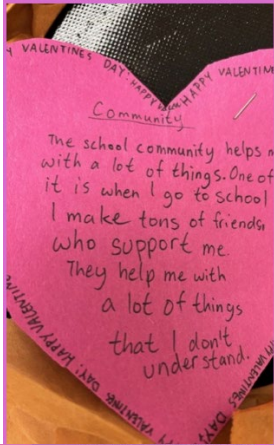 Y VALENTINES DAY! HAPPY
HAPPY VALENTIN
Community
The school community helps
with a lot of things. One of
it is when I go to school
I make tons of friends,
who support me.
They help me with
a lot of things
that I don't
understand.
VALENTINES DAY! HAPPY VALENTIN
VALENTINES DAY!